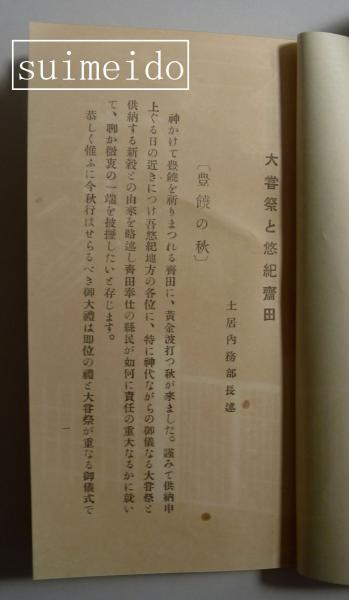 suimeido
大嘗祭と悠紀齋田
土居內務部長述
〔豊饒の秋〕
神かけて豊饒を祈りまつれる齊田に、黃金波打つ秋が來ました。謹みて供納申
上ぐる日の近きにつけ吾悠紀地方の各位に、特に神代ながらの御儀なる大嘗祭と
供納する新穀との由來を略述し齊田奉仕の縣民が如何に責任の重大なるかに就い
て、聊か微衷の一端を披攊したいと存じます。
恭しく惟ふに今秋行はせらるべき御大禮は卽位の禮と大嘗祭が重なる御儀式で
一